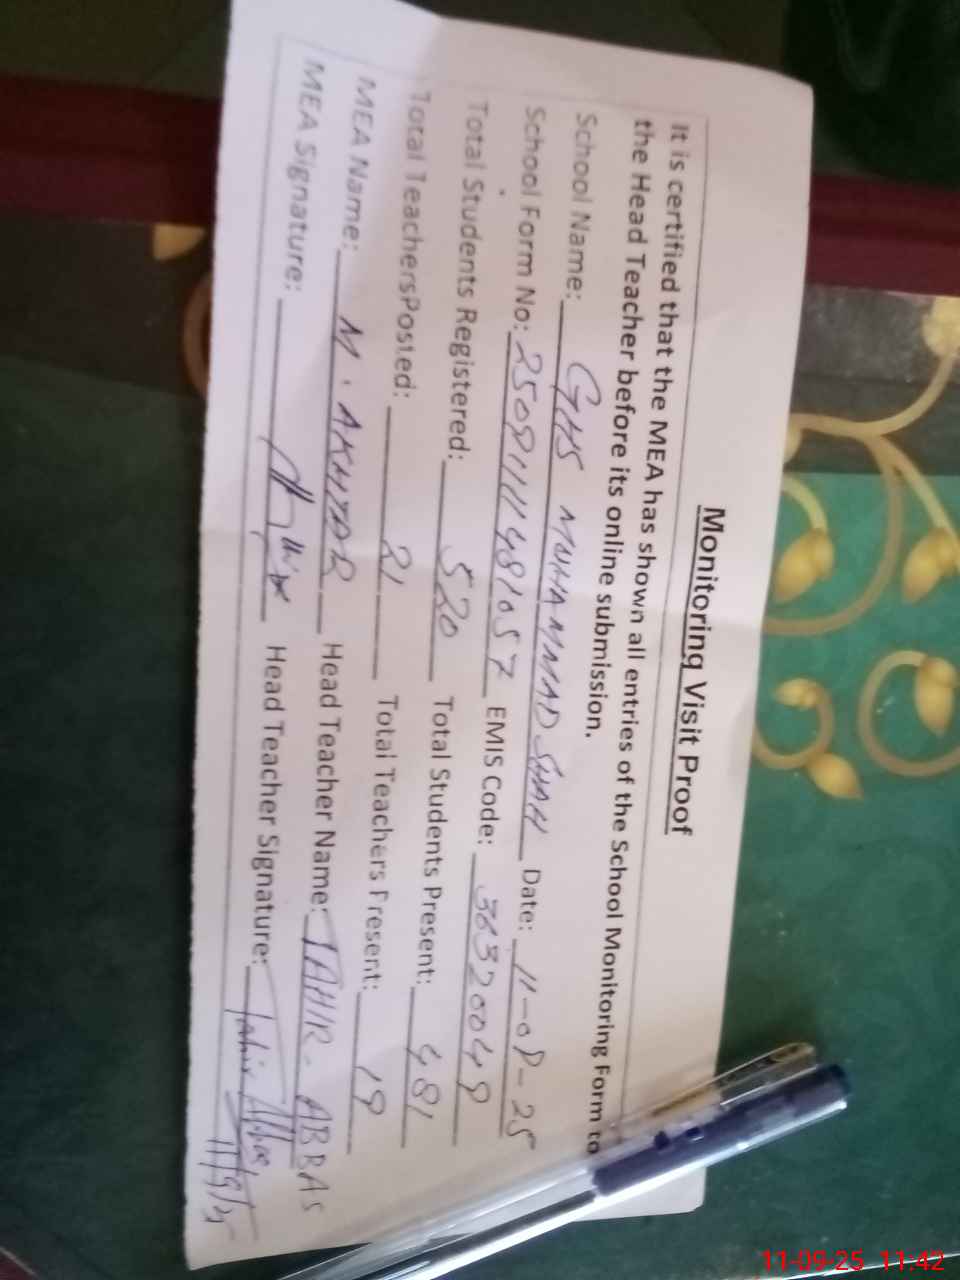 Monitoring Visit Proof
It is certified that the MEA has shown all entries of the School Monitoring Form to
the Head Teacher before its online submission.
School Name: GHS MUHAMMAD SHAH Date: 11-09-25
School Form No: 25091111481057 EMIS Code: 36320049
Total Students Registered: 520 Total Students Present: 481
Total TeachersPosted: 21 Total Teachers Present: 19
MEA Name: M. AKHTAR Head Teacher Name: TAHIR. ABBAS
MEA Signature: Head Teacher Signature: Tahir Abbas
11/9/25
11-09-25 11:42